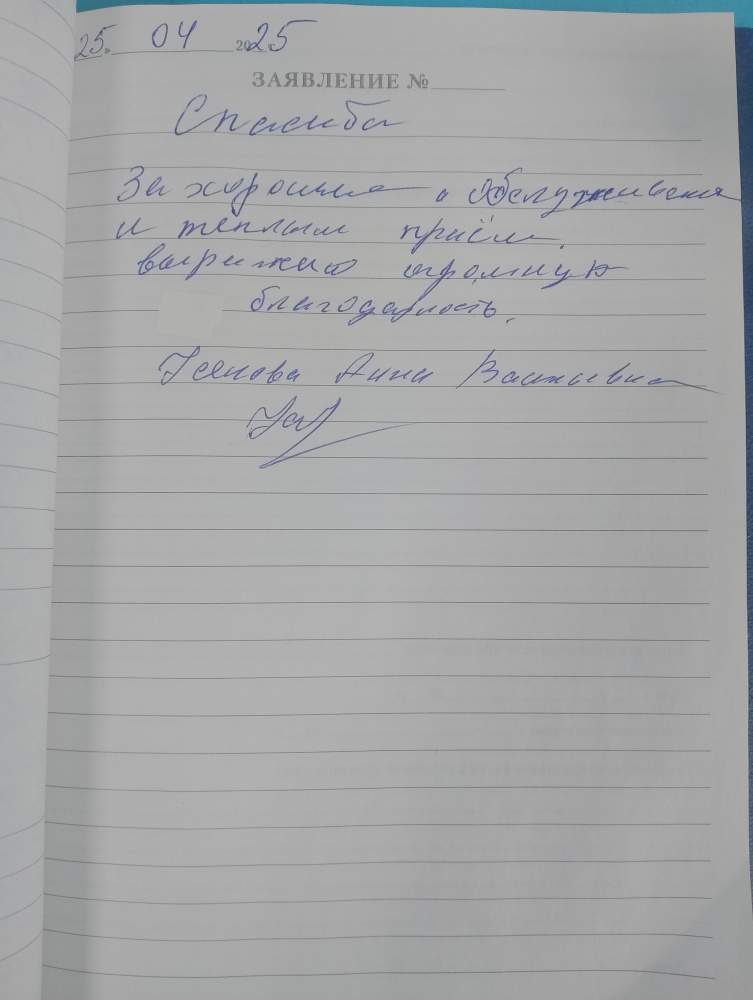 25. 04 2025
ЗАЯВЛЕНИЕ №
Спасиба
За хорошие обслуживания
и теплым приём.
выражаю огромную
благодарность.
Усякова Анна Васильевна